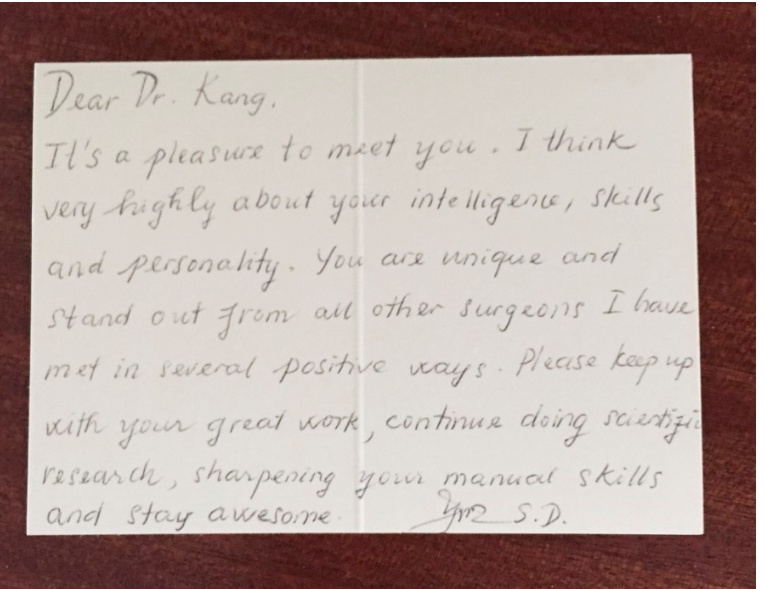 Dear Dr. Kang.
It's a pleasure to meet you. I think
very highly about your intelligence, skills
and personality. You are unique and
stand out from all other surgeons I have
met in several positive ways. Please keep up
with your great work, continue doing scientific
research, sharpening your manual skills
and stay awesome. S.D.